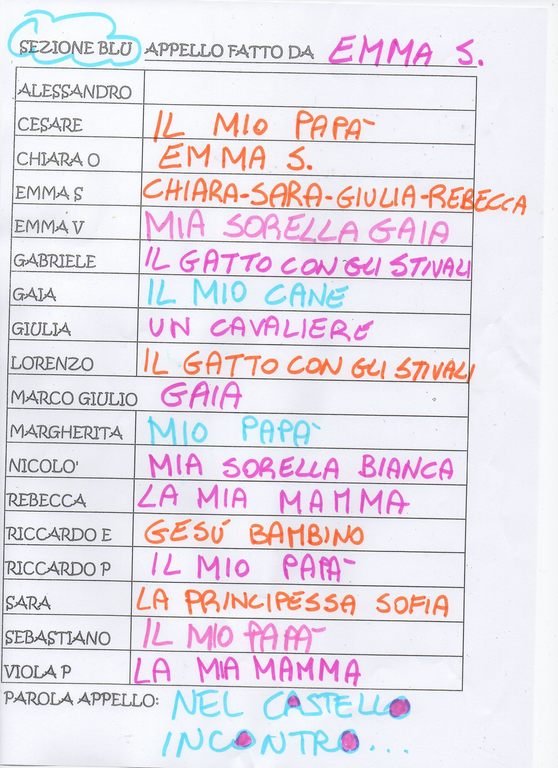 SEZIONE BLU APPELLO FATTO DA EMMA S.
ALESSANDRO
CESARE IL MIO PAPA'
CHIARA O EMMA S.
EMMA S CHIARA-SARA-GIULIA-REBECCA
EMMA V MIA SORELLA GAIA
GABRIELE IL GATTO CON GLI STIVALI
GAIA IL MIO CANE
GIULIA UN CAVALIERE
LORENZO IL GATTO CON GLI STIVALI
MARCO GIULIO GAIA
MARGHERITA MIO PAPA'
NICOLO' MIA SORELLA BIANCA
REBECCA LA MIA MAMMA
RICCARDO E GESÚ BAMBINO
RICCARDO P IL MIO PAPA'
SARA LA PRINCIPESSA SOFIA
SEBASTIANO IL MIO PAPA'
VIOLA P LA MIA MAMMA
PAROLA APPELLO: NEL CASTELLO
INCONTRO...